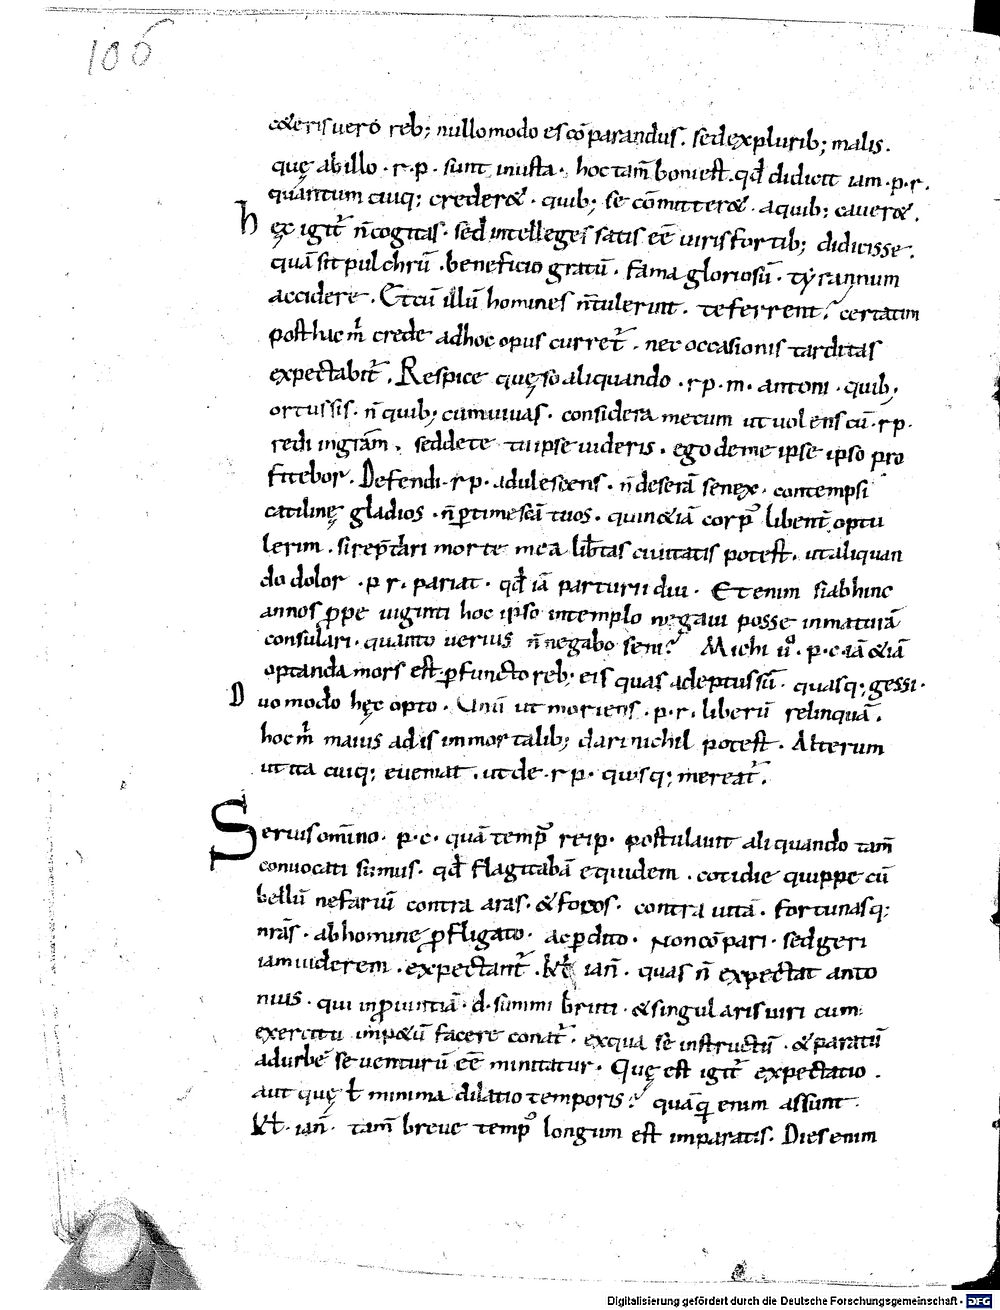 106
c&erisuero reb; nullomodo escōparandus. sedexplurib; malis.
quę abillo · r·p· sunt inusta · hoctam̄ boniest. qđ didicit iam · p·r·
quantum cuiq; creder& · quib; se cōmitter& · aquib; cauer&.
hęc igit̃ n̄cogitas · sed intelleges satis eē uirisfortib; didicisse.
quā sit pulchrū · beneficio gratū · fama gloriosū · tyrannum
accidere. Etcū illū homines n̄tulerint. teferrent? certatim
posthacm̄ crede adhoc opus curret̃. nec occasionis tarditas
expectabit̃. Respice quęso aliquando · r p · m · antoni · quib;
ortussis · n̄ quib; cumuiuas · considera mecum ut uol ens cū · r p ·
redi ingrām. seddete tuipse uideris. ego deme ipse ipso pro
fitebor. Defendi · r p · adulescens · n̄ deserā senex · contempsi
catilinę gladios · n̄ ꝑtimescā tuos · quin&iā corp̃ libent̃ optu
lerim. si rep̄tāri morte mea lib̄tas ciuitatis potest. utaliquan
do dolor · p r · pariat · qđ iā parturit diu. Etenim siabhinc
annos ꝓpe uiginti hoc ipso intemplo negaui posse inmaturā
consulari · quanto uerius n̄ negabo seni? Michi u° · p · c · iā &iā
optanda mors est ꝑfuncto reb; eis quas adeptussū · quasq; gessi ·
Duomodo hęc opto. Unū ut moriens · p · r · liberū relinquā.
hocm̄ maius adis immortalib; dari nichil potest. Alterum
ut ita cuiq; eueniat. ut de · r p · quisq; mereat̃.
Seriusomīno · p · c · quā temp̃ reip · postulauit aliquando tam̄
conuocati sumus · qđ flagitabā equidem. cotidie quippe cū
bellū nefariū contra aras · &focos · contra uitā · fortunasq;
nrās · abhomine ꝓfligato · acꝑdito · Noncōpari · sedgeri
iamuiderem. expectant̃. Kł ian̄ · quas n̄ expectat anto
nius · qui inꝓuintiā · d · summi bruti · &singularis uiri cum
exercitu imp&ū facere conat̃ · exqua sē instructū · &paratū
adurbē se uenturū eē minitatur. Quę est igit̃ expectatio.
aut quę ł minima dilatio temporis? quāq̄ enim assunt
Kł · ian̄ · tam̄ breue temp̃ longum est imparatis. Dies enim
Digitalisierung gefördert durch die Deutsche Forschungsgemeinschaft · DFG